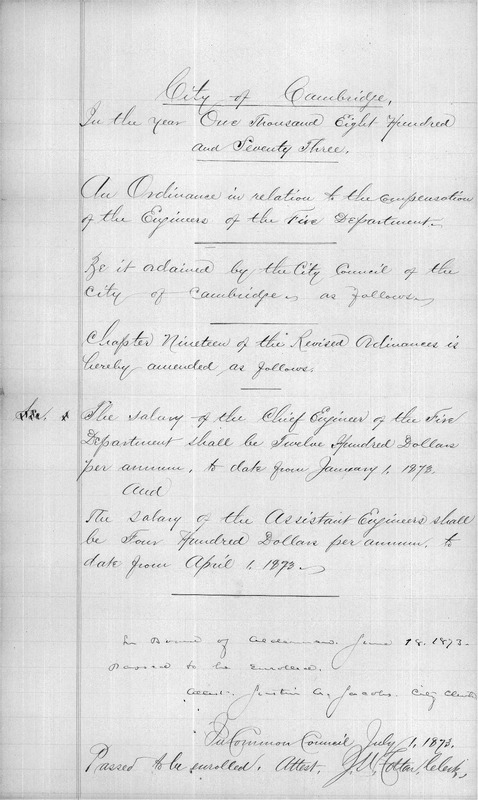 City of Cambridge,
In the year One Thousand Eight Hundred
and Seventy Three.
An Ordinance in relation to the compensation
of the Engineers of the Fire Department.
Be it ordained by the City Council of the
City of Cambridge, as follows.
Chapter Nineteen of the Revised Ordinances is
hereby amended as follows.
The salary of the Chief Engineer of the Fire
Department shall be Twelve Hundred Dollars
per annum, to date from January 1, 1873.
And
The salary of the Assistant Engineers shall
be Four Hundred Dollars per annum, to
date from April 1. 1873.
In Board of Aldermen. June 18. 1873.
Passed to be enrolled.
Attest. Justin A. Jacobs. City Clerk
In Common Council July 1, 1873.
Passed to be enrolled. Attest, Cotton, Clerk.